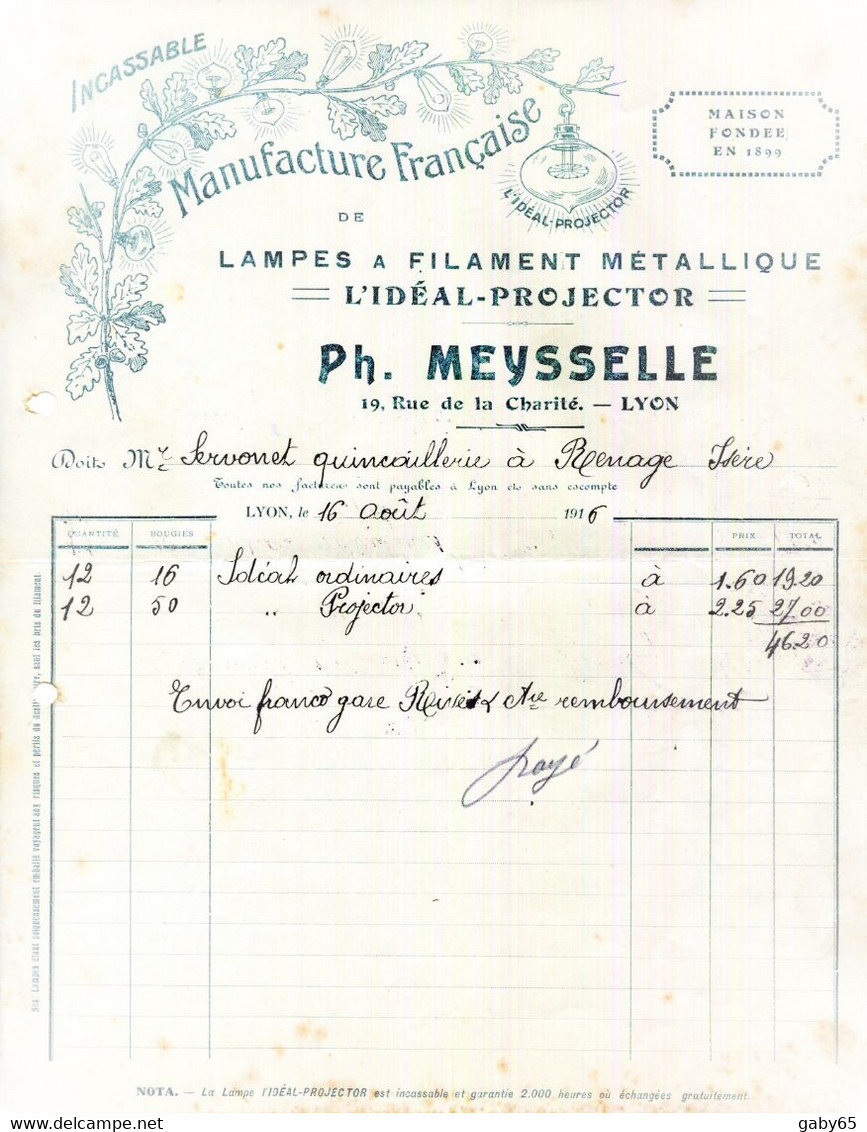 INCASSABLE
Manufacture Française
MAISON
FONDEE
EN 1899
L'IDÉAL-PROJECTOR
DE
LAMPES A FILAMENT MÉTALLIQUE
L'IDÉAL-PROJECTOR
Ph. MEYSSELLE
19, Rue de la Charité. — LYON
Doit Mr Servonet quincaillerie à Renage Isère
Toutes nos factures sont payables à Lyon et sans escompte
LYON, le 16 août 1916
QUANTITÉ BOUGIES PRIX TOTAL
12 16 Idéal ordinaires à 1.60 19.20
12 50 " Projector à 2.25 27.00
46.20
Envoi franco gare Rives & Ctre remboursement
payé
Nos Lampes étant soigneusement emballé voyagent aux risques et périls du destinataire, sauf les bris du filament.
NOTA. — La Lampe l'IDÉAL-PROJECTOR est incassable et garantie 2.000 heures où échangées gratuitement.
gaby65